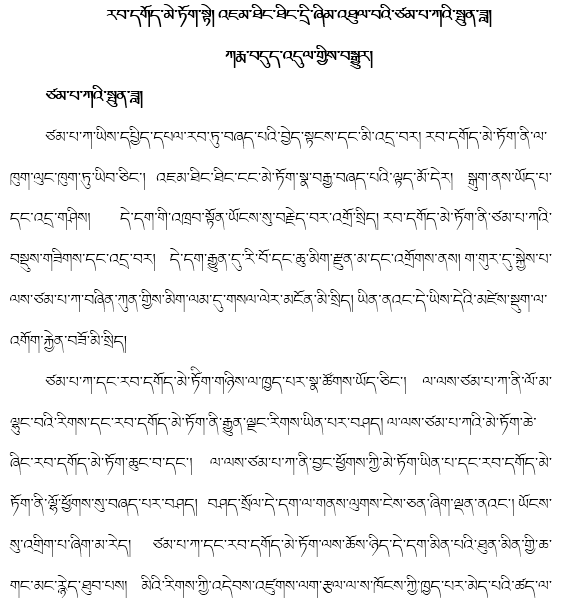 རབ་དགོད་མེ་ཏོག་སྟེ། འཇམ་ཐིང་ཐིང་དྲི་ཞིམ་འཐུལ་བའི་ཙམ་པ་ཀའི་སྤུན་ཟླ།
ཀརྨ་བདུད་འདུལ་གྱིས་བསྒྱུར།
ཙམ་པ་ཀའི་སྤུན་ཟླ།
ཙམ་པ་ཀ་ཡིས་དཔྱིད་དཔལ་རབ་ཏུ་བཞད་པའི་བྱེད་སྟངས་དང་མི་འདྲ་བར། རབ་དགོད་མེ་ཏོག་ནི་ལ་
ཁུག་ལུང་ཁུག་ཏུ་ཡིབ་ཅིང་། འཇམ་ཐིང་ཐིང་ངང་མེ་ཏོག་སྣ་བརྒྱ་བཞད་པའི་ལྟད་མོ་དེར། སྒུག་ནས་ཡོད་པ་
དང་འདྲ་གཤིས། དེ་དག་གི་འཁྲབ་སྟོན་ཡོངས་སུ་བརྗེད་བར་འགྲོ་སྲིད། རབ་དགོད་མེ་ཏོག་ནི་ཙམ་པ་ཀའི་
བསྡུས་གཟིགས་དང་འདྲ་བར། དེ་དག་རྒྱུན་དུ་རི་བོ་དང་ཆུ་མིག་རྫུན་མ་དང་འགྲོགས་ནས། ག་གུར་དུ་སྐྱེས་པ་
ལས་ཙམ་པ་ཀ་བཞིན་ཀུན་གྱིས་མིག་ལམ་དུ་གསལ་ལེར་མངོན་མི་སྲིད། ཡིན་ནའང་དེ་ཡིས་དེའི་མཛེས་སྡུག་ལ་
འགོག་རྐྱེན་བཟོ་མི་སྲིད།
ཙམ་པ་ཀ་དང་རབ་དགོད་མེ་ཏོག་གཉིས་ལ་ཁྱད་པར་སྣ་ཚོགས་ཡོད་ཅིང་། ལ་ལས་ཙམ་པ་ཀ་ནི་ལོ་མ་
ལྷུང་བའི་རིགས་དང་རབ་དགོད་མེ་ཏོག་ནི་རྒྱུན་ལྗང་རིགས་ཡིན་པར་བཤད། ལ་ལས་ཙམ་པ་ཀའི་མེ་ཏོག་ཆེ་
ཞིང་རབ་དགོད་མེ་ཏོག་ཆུང་བ་དང་། ལ་ལས་ཙམ་པ་ཀ་ནི་བྱང་ཕྱོགས་ཀྱི་མེ་ཏོག་ཡིན་པ་དང་རབ་དགོད་མེ་
ཏོག་ནི་ལྷོ་ཕྱོགས་སུ་བཞད་པར་བཤད། བཤད་སྲོལ་དེ་དག་ལ་གནས་ལུགས་ངེས་ཅན་ཞིག་ལྡན་ནའང་། ཡོངས་
སུ་འགྲིག་པ་ཞིག་མ་རེད། ཙམ་པ་ཀ་དང་རབ་དགོད་མེ་ཏོག་ལས་ཆོས་ཉིད་དེ་དག་མིན་པའི་ཐུན་མིན་གྱི་ཆ་
གང་མང་རྙེད་ཐུབ་པས། མིའི་རིགས་ཀྱི་འདེབས་འཛུགས་ལག་རྩལ་ལ་ས་ཁོངས་ཀྱི་ཁྱད་པར་མེད་པའི་ཚད་ལ་